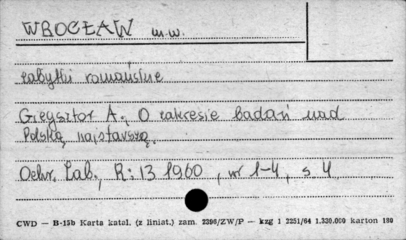 WROCŁAW m.w.
zabytki romańskie
Gieysztor A., O zakresie badań nad
Polską najstarszą.
Ochr. Zab., R: 13 1960, nr 1-4, s 4
CWD — B-15b Karta katal. (z liniat.) zam. 2396/ZW/P — kzg 1 2251/64 1.330.000 karton 180